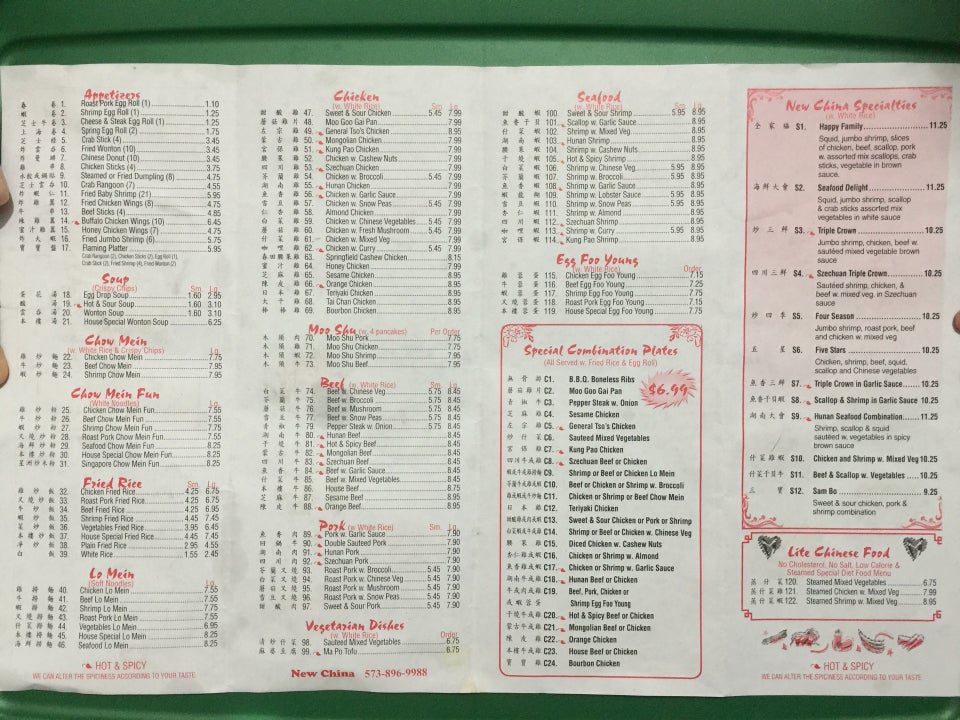 Appetizers
春 卷 1. Roast Pork Egg Roll (1) 1.10
蝦 卷 2. Shrimp Egg Roll (1) 1.25
芝士牛卷 3. Cheese & Steak Egg Roll (1) 1.25
上海卷 4. Spring Egg Roll (2) 1.75
5. Crab Stick (4) 3.45
炸雲吞 6. Fried Wonton (10) 3.45
7. Chinese Donut (10) 3.45
8. Chicken Sticks (4) 3.75
9. Steamed or Fried Dumpling (8) 4.75
芝士雲吞 10. Crab Rangoon (7) 4.55
11. Fried Baby Shrimp (21) 5.95
炸雞翼 12. Fried Chicken Wings (8) 4.75
牛 串 13. Beef Sticks (4) 4.85
辣雞翼 14. Buffalo Chicken Wings (10) 6.45
蜜汁雞翼 15. Honey Chicken Wings (7) 4.75
炸大蝦 16. Fried Jumbo Shrimp (6) 5.75
寶寶盤 17. Flaming Platter 5.95
Crab Rangoon (2), Chicken Sticks (2), Egg Roll (1),
Crab Stick (2), Fried Jumbo Shrimp (4), Fried Wonton (2)
Soup
(Crispy Chips) Sm. Lg.
蛋花湯 18. Egg Drop Soup 1.60 2.95
酸辣湯 19. Hot & Sour Soup 1.60 3.10
雲吞湯 20. Wonton Soup 1.60 3.10
本樓湯 21. House Special Wonton Soup 6.25
Chow Mein
(w. White Rice & Crispy Chips)
雞炒麵 22. Chicken Chow Mein 7.75
牛炒麵 23. Beef Chow Mein 7.95
蝦炒麵 24. Shrimp Chow Mein 7.95
Chow Mein Fun
(White Noodles)
雞炒粉 25. Chicken Chow Mein Fun 7.55
牛炒粉 26. Beef Chow Mein Fun 7.55
蝦炒粉 27. Shrimp Chow Mein Fun 7.75
叉燒炒粉 28. Roast Pork Chow Mein Fun 7.55
海鮮炒粉 29. Seafood Chow Mein Fun 8.25
本樓炒粉 30. House Special Chow Mein Fun 8.25
星洲炒米粉 31. Singapore Chow Mein Fun 8.25
Fried Rice Sm. Lg.
雞炒飯 32. Chicken Fried Rice 4.25 6.75
叉燒炒飯 33. Roast Pork Fried Rice 4.25 6.75
牛炒飯 34. Beef Fried Rice 4.25 6.95
蝦炒飯 35. Shrimp Fried Rice 4.45 7.45
菜炒飯 36. Vegetables Fried Rice 3.95 6.45
本樓炒飯 37. House Special Fried Rice 4.45 7.45
淨炒飯 38. Plain Fried Rice 2.95 4.55
白飯 39. White Rice 1.55 2.45
Lo Mein
(Soft Noodles) Lg.
雞撈麵 40. Chicken Lo Mein 7.55
牛撈麵 41. Beef Lo Mein 7.55
蝦撈麵 42. Shrimp Lo Mein 7.75
叉燒撈麵 43. Roast Pork Lo Mein 7.55
什菜撈麵 44. Vegetables Lo Mein 6.95
本樓撈麵 45. House Special Lo Mein 8.25
海鮮撈麵 46. Seafood Lo Mein 8.25
HOT & SPICY
WE CAN ALTER THE SPICINESS ACCORDING TO YOUR TASTE.
Chicken
(w. White Rice) Sm. Lg.
甜酸雞 47. Sweet & Sour Chicken 5.45 7.99
蘑菇雞片 48. Moo Goo Gai Pan 7.99
左宗雞 49. General Tso's Chicken 8.95
蒙古雞 50. Mongolian Chicken 8.95
宮保雞 51. Kung Pao Chicken 7.99
腰果雞 52. Chicken w. Cashew Nuts 7.99
四川雞 53. Szechuan Chicken 7.99
芥蘭雞 54. Chicken w. Broccoli 5.45 7.99
湖南雞 55. Hunan Chicken 7.99
魚香雞 56. Chicken w. Garlic Sauce 7.99
雪豆雞 57. Chicken w. Snow Peas 5.45 7.99
杏仁雞 58. Almond Chicken 7.99
白菜雞 59. Chicken w. Chinese Vegetables 5.45 7.99
蘑菇雞 60. Chicken w. Fresh Mushroom 5.45 7.99
什菜雞 61. Chicken w. Mixed Veg 7.99
咖喱雞 62. Chicken w. Curry 5.45 7.99
春田腰果雞 63. Springfield Cashew Chicken 8.15
蜜汁雞 64. Honey Chicken 7.99
芝麻雞 65. Sesame Chicken 8.95
陳皮雞 66. Orange Chicken 8.95
日本雞 67. Teriyaki Chicken 8.95
大千雞 68. Tai Chan Chicken 8.95
棒棒雞 69. Bourbon Chicken 8.95
Moo Shu (w. 4 pancakes) Per Order
木須肉 70. Moo Shu Pork 7.75
木須雞 71. Moo Shu Chicken 7.75
木須蝦 72. Moo Shu Shrimp 7.95
木須牛 73. Moo Shu Beef 7.95
Beef (w. White Rice) Sm. Lg.
白菜牛 74. Beef w. Chinese Veg 5.75 8.45
芥蘭牛 75. Beef w. Broccoli 5.75 8.45
蘑菇牛 76. Beef w. Mushroom 5.75 8.45
雪豆牛 77. Beef w. Snow Peas 5.75 8.45
青椒牛 79. Pepper Steak w. Onion 5.75 8.45
湖南牛 80. Hunan Beef 8.45
干燒牛 81. Hot & Spicy Beef 8.45
蒙古牛 82. Mongolian Beef 8.45
四川牛 83. Szechuan Beef 8.45
魚香牛 84. Beef w. Garlic Sauce 8.45
什菜牛 85. Beef w. Mixed Vegetables 8.45
本樓牛 86. House Beef 8.45
芝麻牛 87. Sesame Beef 8.95
陳皮牛 88. Orange Beef 8.95
Pork (w White Rice) Sm. Lg.
魚香肉 89. Pork w. Garlic Sauce 7.90
回鍋肉 90. Double Sauteed Pork 7.90
湖南肉 91. Hunan Pork 7.90
四川肉 92. Szechuan Pork 7.90
芥蘭叉燒 93. Roast Pork w. Broccoli 5.45 7.90
白菜叉燒 94. Roast Pork w. Chinese Veg 5.45 7.90
蘑菇叉燒 95. Roast Pork w. Mushroom 5.45 7.90
雪豆叉燒 96. Roast Pork w. Snow Peas 5.45 7.90
甜酸肉 97. Sweet & Sour Pork 5.45 7.90
Vegetarian Dishes
(w. White Rice) Order
清炒什菜 98. Sauteed Mixed Vegetables 6.75
麻婆豆腐 99. Ma Po Tofu 6.75
New China 573-896-9988
Seafood
(w. White Rice) Sm. Lg.
甜酸蝦 100. Sweet & Sour Shrimp 5.95 8.95
魚香干貝 101. Scallop w. Garlic Sauce 8.95
什菜蝦 102. Shrimp w. Mixed Veg 8.95
湖南蝦 103. Hunan Shrimp 8.95
腰果蝦 104. Shrimp w. Cashew Nuts 8.95
干燒蝦 105. Hot & Spicy Shrimp 8.95
白菜蝦 106. Shrimp w. Chinese Veg 5.95 8.95
芥蘭蝦 107. Shrimp w. Broccoli 5.95 8.95
魚香蝦 108. Shrimp w. Garlic Sauce 8.95
蝦龍糊 109. Shrimp w. Lobster Sauce 5.95 8.95
雪豆蝦 110. Shrimp w. Snow Peas 5.95 8.95
杏仁蝦 111. Shrimp w. Almond 8.95
四川蝦 112. Szechuan Shrimp 8.95
咖喱蝦 113. Shrimp w. Curry 5.95 8.95
宮保蝦 114. Kung Pao Shrimp 8.95
Egg Foo Young
(w. White Rice) Order
雞蓉蛋 115. Chicken Egg Foo Young 7.25
牛蓉蛋 116. Beef Egg Foo Young 7.25
蝦蓉蛋 117. Shrimp Egg Foo Young 7.25
叉燒蓉蛋 118. Roast Pork Egg Foo Young 7.15
本樓蓉蛋 119. House Special Egg Foo Young 7.75
Special Combination Plates
(All Served w. Fried Rice & Egg Roll)
$6.99
無骨排 C1. B.B.Q. Boneless Ribs
蘑菇雞片 C2. Moo Goo Gai Pan
青椒牛 C3. Pepper Steak w. Onion
芝麻雞 C4. Sesame Chicken
左宗雞 C5. General Tso's Chicken
炒什菜 C6. Sauteed Mixed Vegetables
宮保雞 C7. Kung Pao Chicken
四川牛或雞 C8. Szechuan Beef or Chicken
C9. Shrimp or Beef or Chicken Lo Mein
C10. Beef or Chicken or Shrimp w. Broccoli
C11. Chicken or Shrimp or Beef Chow Mein
日本雞 C12. Teriyaki Chicken
C13. Sweet & Sour Chicken or Pork or Shrimp
C14. Shrimp or Beef or Chicken w. Chinese Veg
腰果雞 C15. Diced Chicken w. Cashew Nuts
杏仁雞或蝦 C16. Chicken or Shrimp w. Almond
魚香雞或蝦 C17. Chicken or Shrimp w. Garlic Sauce
湖南牛或雞 C18. Hunan Beef or Chicken
C19. Beef, Pork, Chicken or
Shrimp Egg Foo Young
干燒牛或雞 C20. Hot & Spicy Beef or Chicken
蒙古牛或雞 C21. Mongolian Beef or Chicken
陳皮雞 C22. Orange Chicken
本樓牛或雞 C23. House Beef or Chicken
C24. Bourbon Chicken
New China Specialties
(w. White Rice)
全家福 S1. Happy Family 11.25
Squid, jumbo shrimp, slices
of chicken, beef, scallop, pork
w. assorted mix scallops, crab
sticks, vegetable in brown
sauce.
海鮮大會 S2. Seafood Delight 11.25
Squid, jumbo shrimp, scallop
& crab sticks assorted mix
vegetables in white sauce
炒三鮮 S3. Triple Crown 10.25
Jumbo shrimp, chicken, beef w.
sautéed mixed vegetable brown
sauce
四川三鮮 S4. Szechuan Triple Crown 10.25
Sautéed shrimp, chicken, &
beef w. mixed veg. in Szechuan
sauce
炒四季 S5. Four Season 10.25
Jumbo shrimp, roast pork, beef
and chicken w. mixed veg
五星 S6. Five Stars 10.25
Chicken, shrimp, beef, squid,
scallop and Chinese vegetables
魚香三鮮 S7. Triple Crown in Garlic Sauce 10.25
魚香干貝蝦 S8. Scallop & Shrimp in Garlic Sauce 10.25
湖南大會 S9. Hunan Seafood Combination 11.25
Shrimp, scallop & squid
sautéed w. vegetables in spicy
brown sauce
什菜雞蝦 S10. Chicken and Shrimp w. Mixed Veg 10.25
什菜干貝牛 S11. Beef & Scallop w. Vegetables 10.25
三寶 S12. Sam Bo 9.25
Sweet & sour chicken, pork &
shrimp combination
Lite Chinese Food
No Cholesterol, No Salt, Low Calorie &
Steamed Special Diet Food Menu
蒸什菜 120. Steamed Mixed Vegetables 6.75
蒸什菜雞 121. Steamed Chicken w. Mixed Veg 7.99
蒸什菜蝦 122. Steamed Shrimp w. Mixed Veg 8.95
HOT & SPICY
WE CAN ALTER THE SPICINESS ACCORDING TO YOUR TASTE